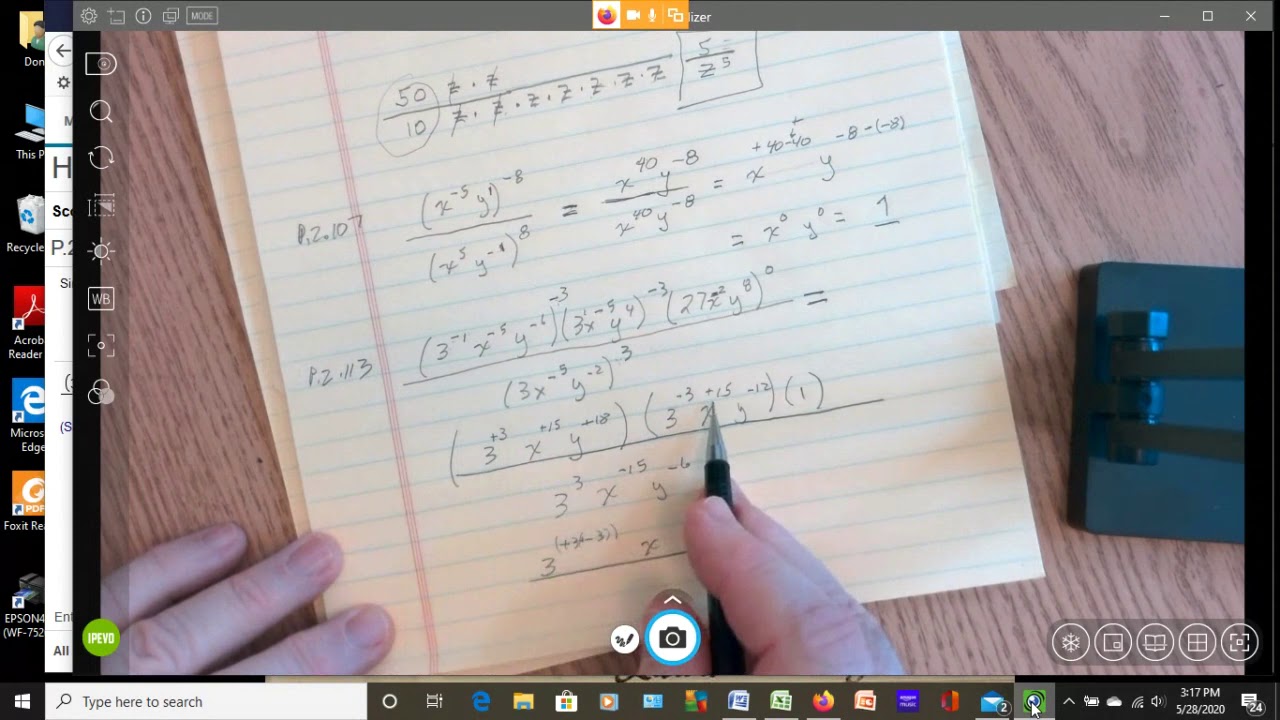 MODE
lizer
Don
This P
Recycle
Acrob
Reader
Micros
Edg
Foxit Rea
EPSON4
(WF-752
H
Sco
P.2
Sin
(3
(S
Ent
All
WB
50 z · z
10 z · z · z · z · z · z · z
5
z⁵
P.2.107 (x⁻⁵ y¹)⁻⁸ = x⁴⁰ y⁻⁸ = x⁺⁴⁰⁻⁴⁰ y⁻⁸⁻⁽⁻⁸⁾
(x⁵ y⁻¹)⁸ x⁴⁰ y⁻⁸
= x⁰ y⁰ = 1
P.2.113 (3⁻¹ x⁻⁵ y⁻⁶)⁻³ (3¹x⁻⁵ y⁴)⁻³ (27x⁻² y⁸)⁰ =
(3x⁻⁵ y⁻²)³
(3⁺³ x⁺¹⁵ y⁺¹⁸) (3⁻³ x⁺¹⁵ y⁻¹²) (1)
3³ x⁻¹⁵ y⁻⁶
3⁽⁺³⁺⁽⁻³⁾⁾ x
IPEVO
Type here to search
2
3:17 PM
5/28/2020
24